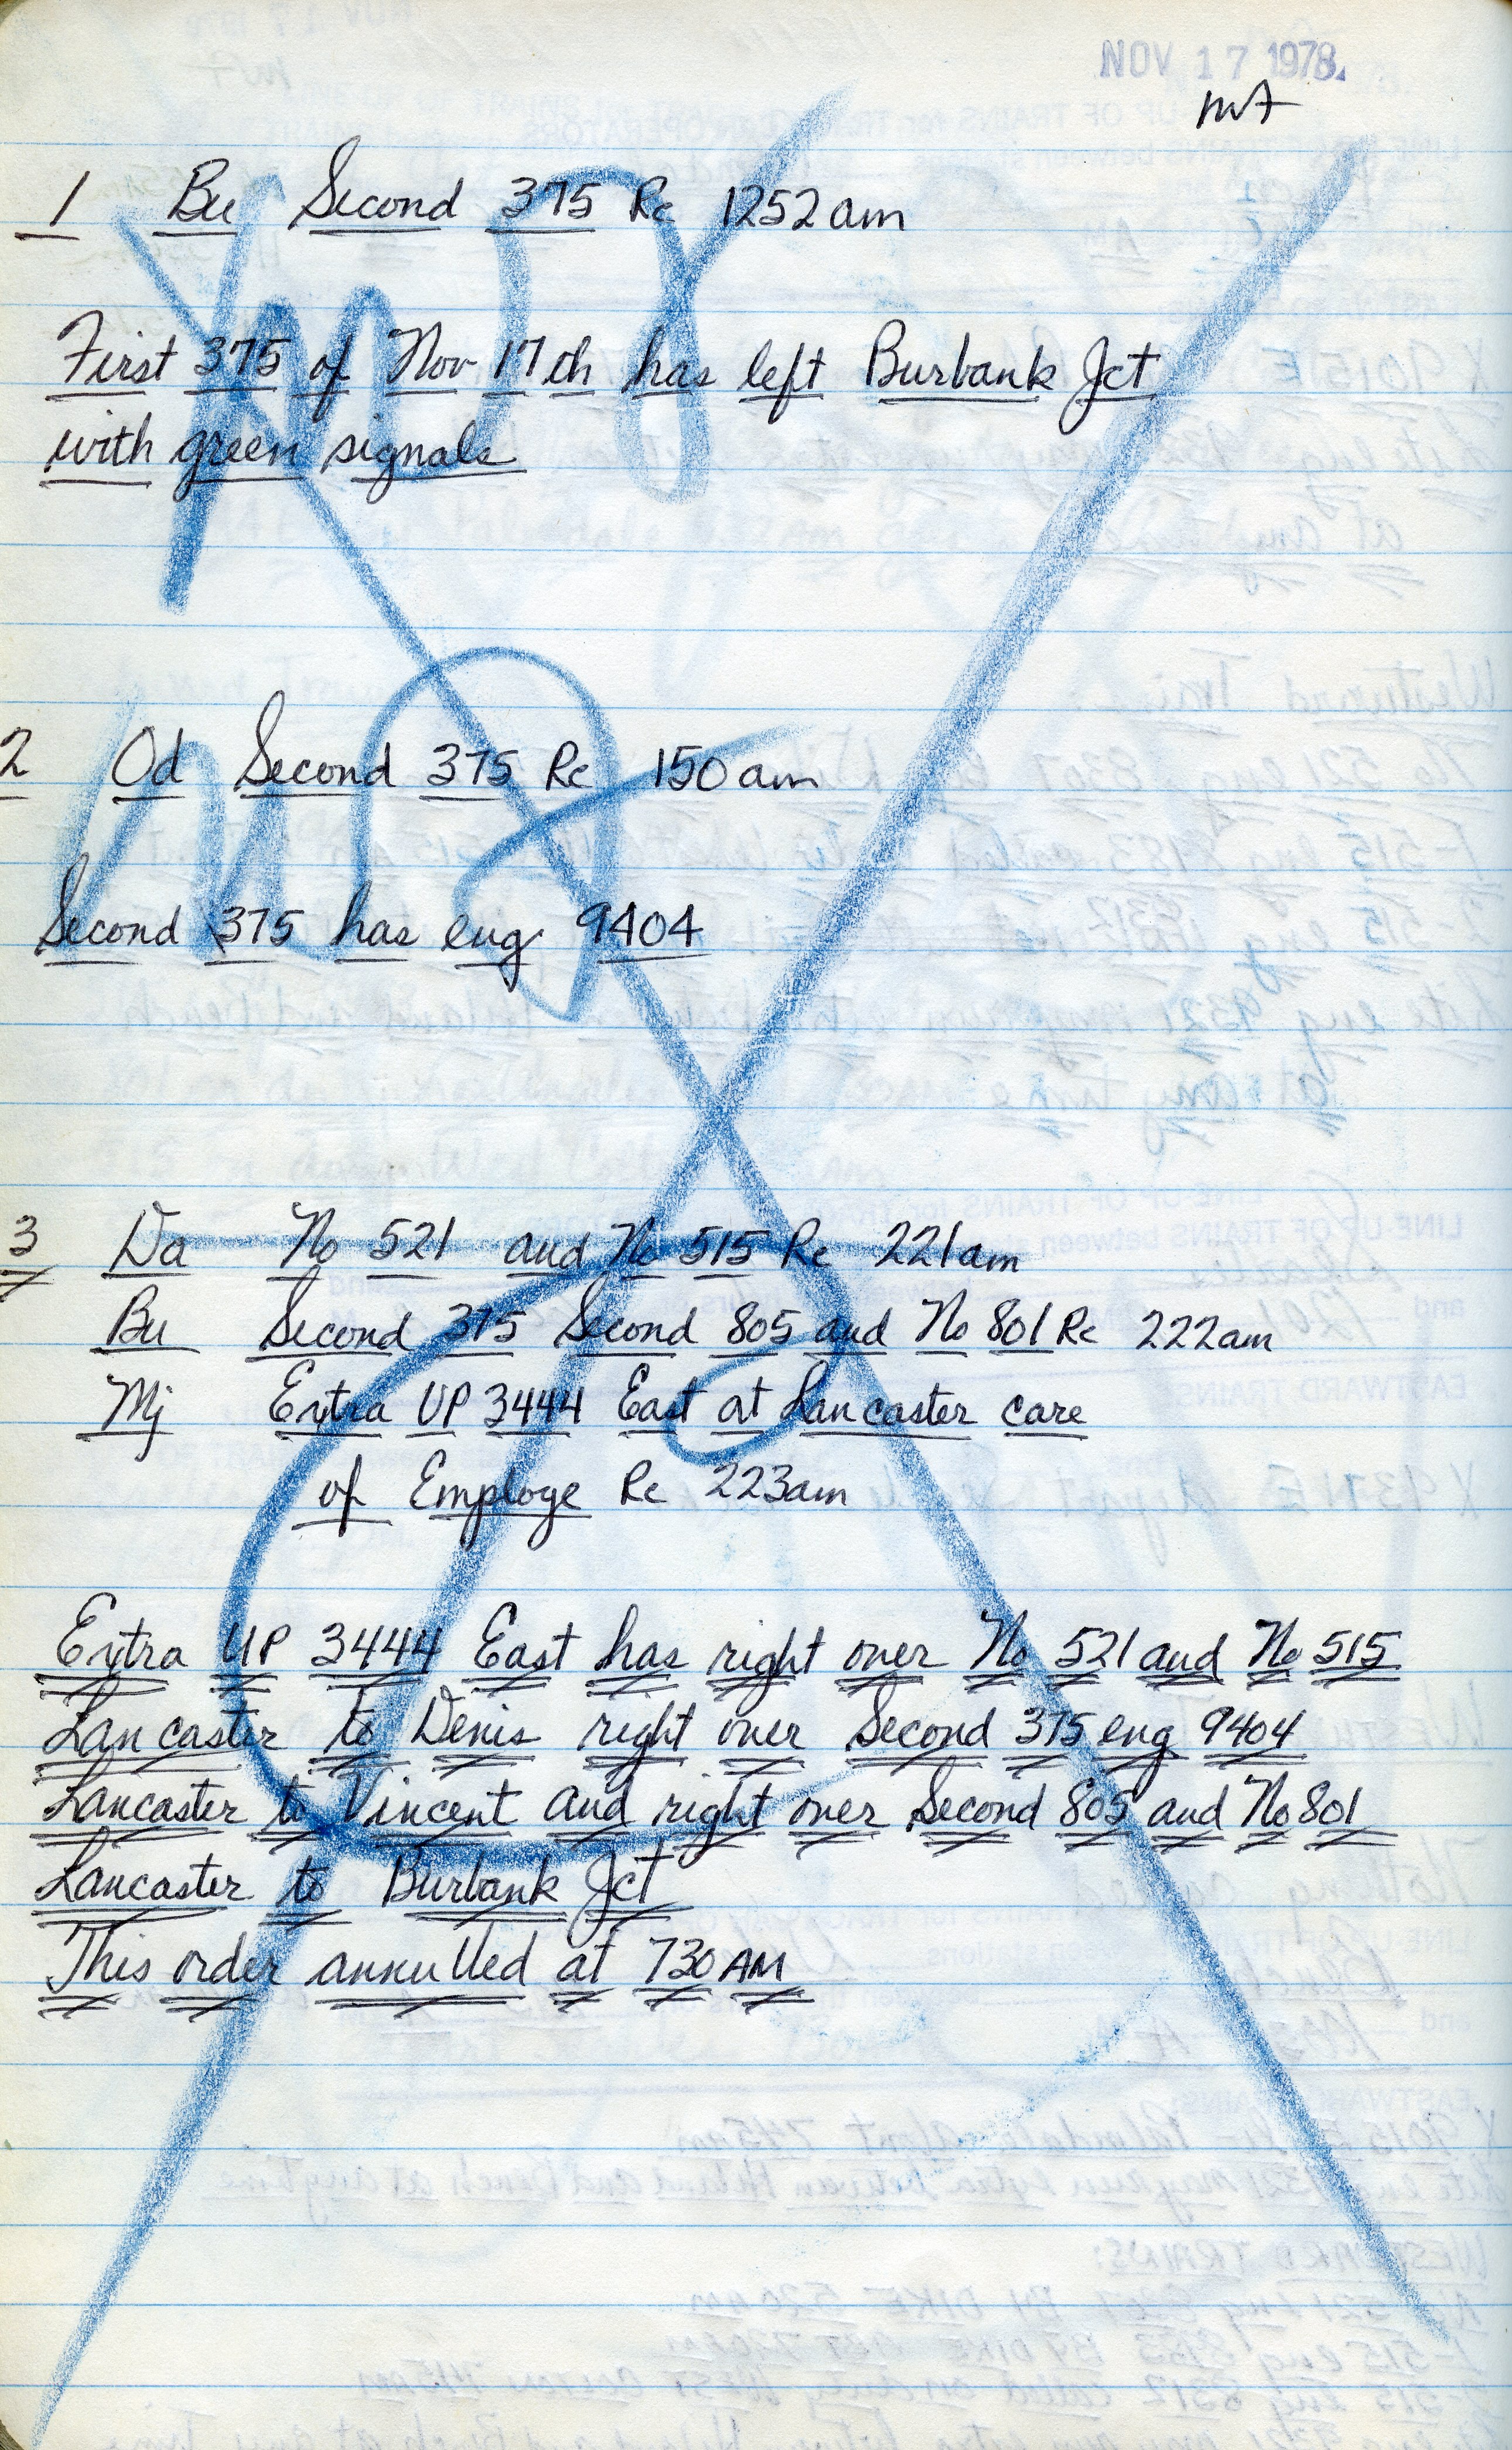 NOV 17 1978
1 Bu Second 375 Rc 1252am
First 375 of Nov 17th has left Burbank Jct
with green signals
2 Od Second 375 Rc 150am
Second 375 has eng 9404
3 Da No 521 and No 515 Rc 221am
Bu Second 375 Second 805 and No 801 Rc 222am
Mj Extra UP 3444 East at Lancaster care
of Employe Rc 223am
Extra UP 3444 East has right over No 521 and No 515
Lancaster to Denis right over Second 375 eng 9404
Lancaster to Vincent and right over Second 805 and No 801
Lancaster to Burbank Jct
This order annulled at 730AM